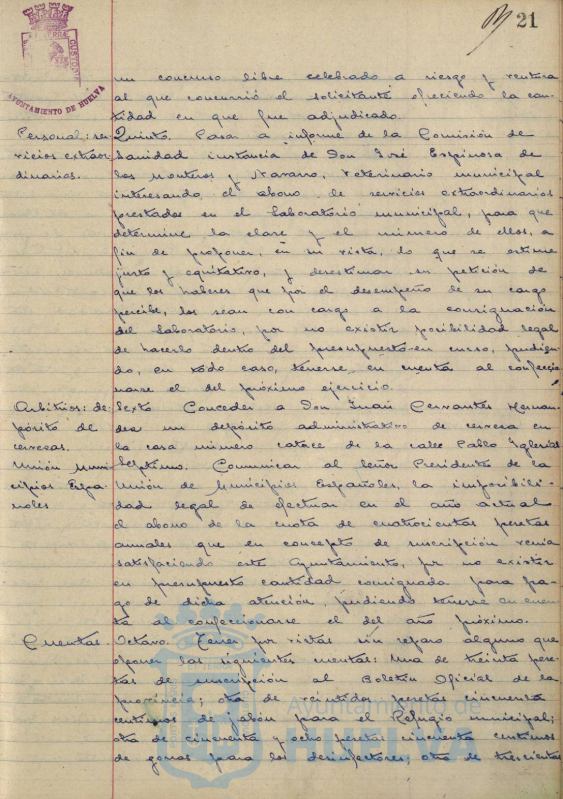 21
AYUNTAMIENTO DE HUELVA
un concurso libre celebrado a riesgo y ventura
al que concurrió el solicitante ofreciendo la can-
tidad en que fue adjudicado.
Personal: ser-
vicios extraor-
dinarios.
Quinto. Pasar a informe de la Comisión de
Sanidad instancia de Don José Espinosa de
los Monteros y Navarro, Veterinario municipal
interesando el abono de servicios extraordinarios
prestados en el Laboratorio municipal, para que
determine la clase y el número de ellos, a
fin de proponer, en su vista, lo que se estime
justo y equitativo, y desestimar su petición de
que los haberes que por el desempeño de su cargo
percibe, los sean con cargo a la consignación
del Laboratorio, por no existir posibilidad legal
de hacerlo dentro del presupuesto en curso, pudien-
do, en todo caso, tenerse en cuenta al confeccio-
narse el del próximo ejercicio.
Arbitrios: de-
pósito de
cervezas.
Sexto Conceder a Don Juan Cervantes Hernan-
dez un depósito administrativo de cerveza en
la casa número catorce de la calle Pablo Iglesias
Unión Muni-
cipios Espa-
ñoles
Septimo. Comunicar al Señor Presidente de la
Unión de Municipios Españoles, la imposibili-
dad legal de efectuar en el año actual
el abono de la cuota de cuatrocientas pesetas
anuales que en concepto de suscripción venia
satisfaciendo este Ayuntamiento, por no existir
en presupuesto cantidad consignada para pa-
go de dicha atención, pudiendo tenerse en cuen-
ta al confeccionarse el del año próximo.
Cuentas.
Octavo. Tener por vistas sin reparo alguno que
oponer las siguientes cuentas: una de treinta pese-
tas de suscripción al Boletin Oficial de la
provincia; otra de veintidos pesetas cincuenta
centimos de jabón para el Refugio municipal;
otra de cincuenta y ocho pesetas cincuenta centimos
de gorras para los desinfectores; otra de trescientas
Ayuntamiento de
HUELVA